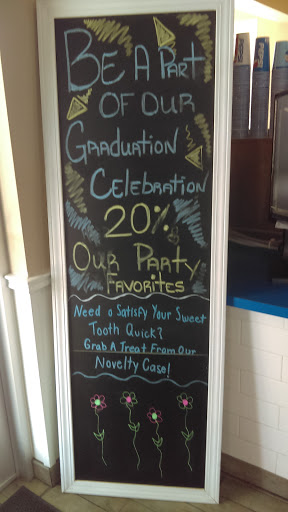 BE A PART
OF OUR
GRADUATION
CELEBRATION
20%
OUR PARTY
FAVORITES
Need a Satisfy Your Sweet
Tooth Quick?
Grab A Treat From Our
Novelty Case!